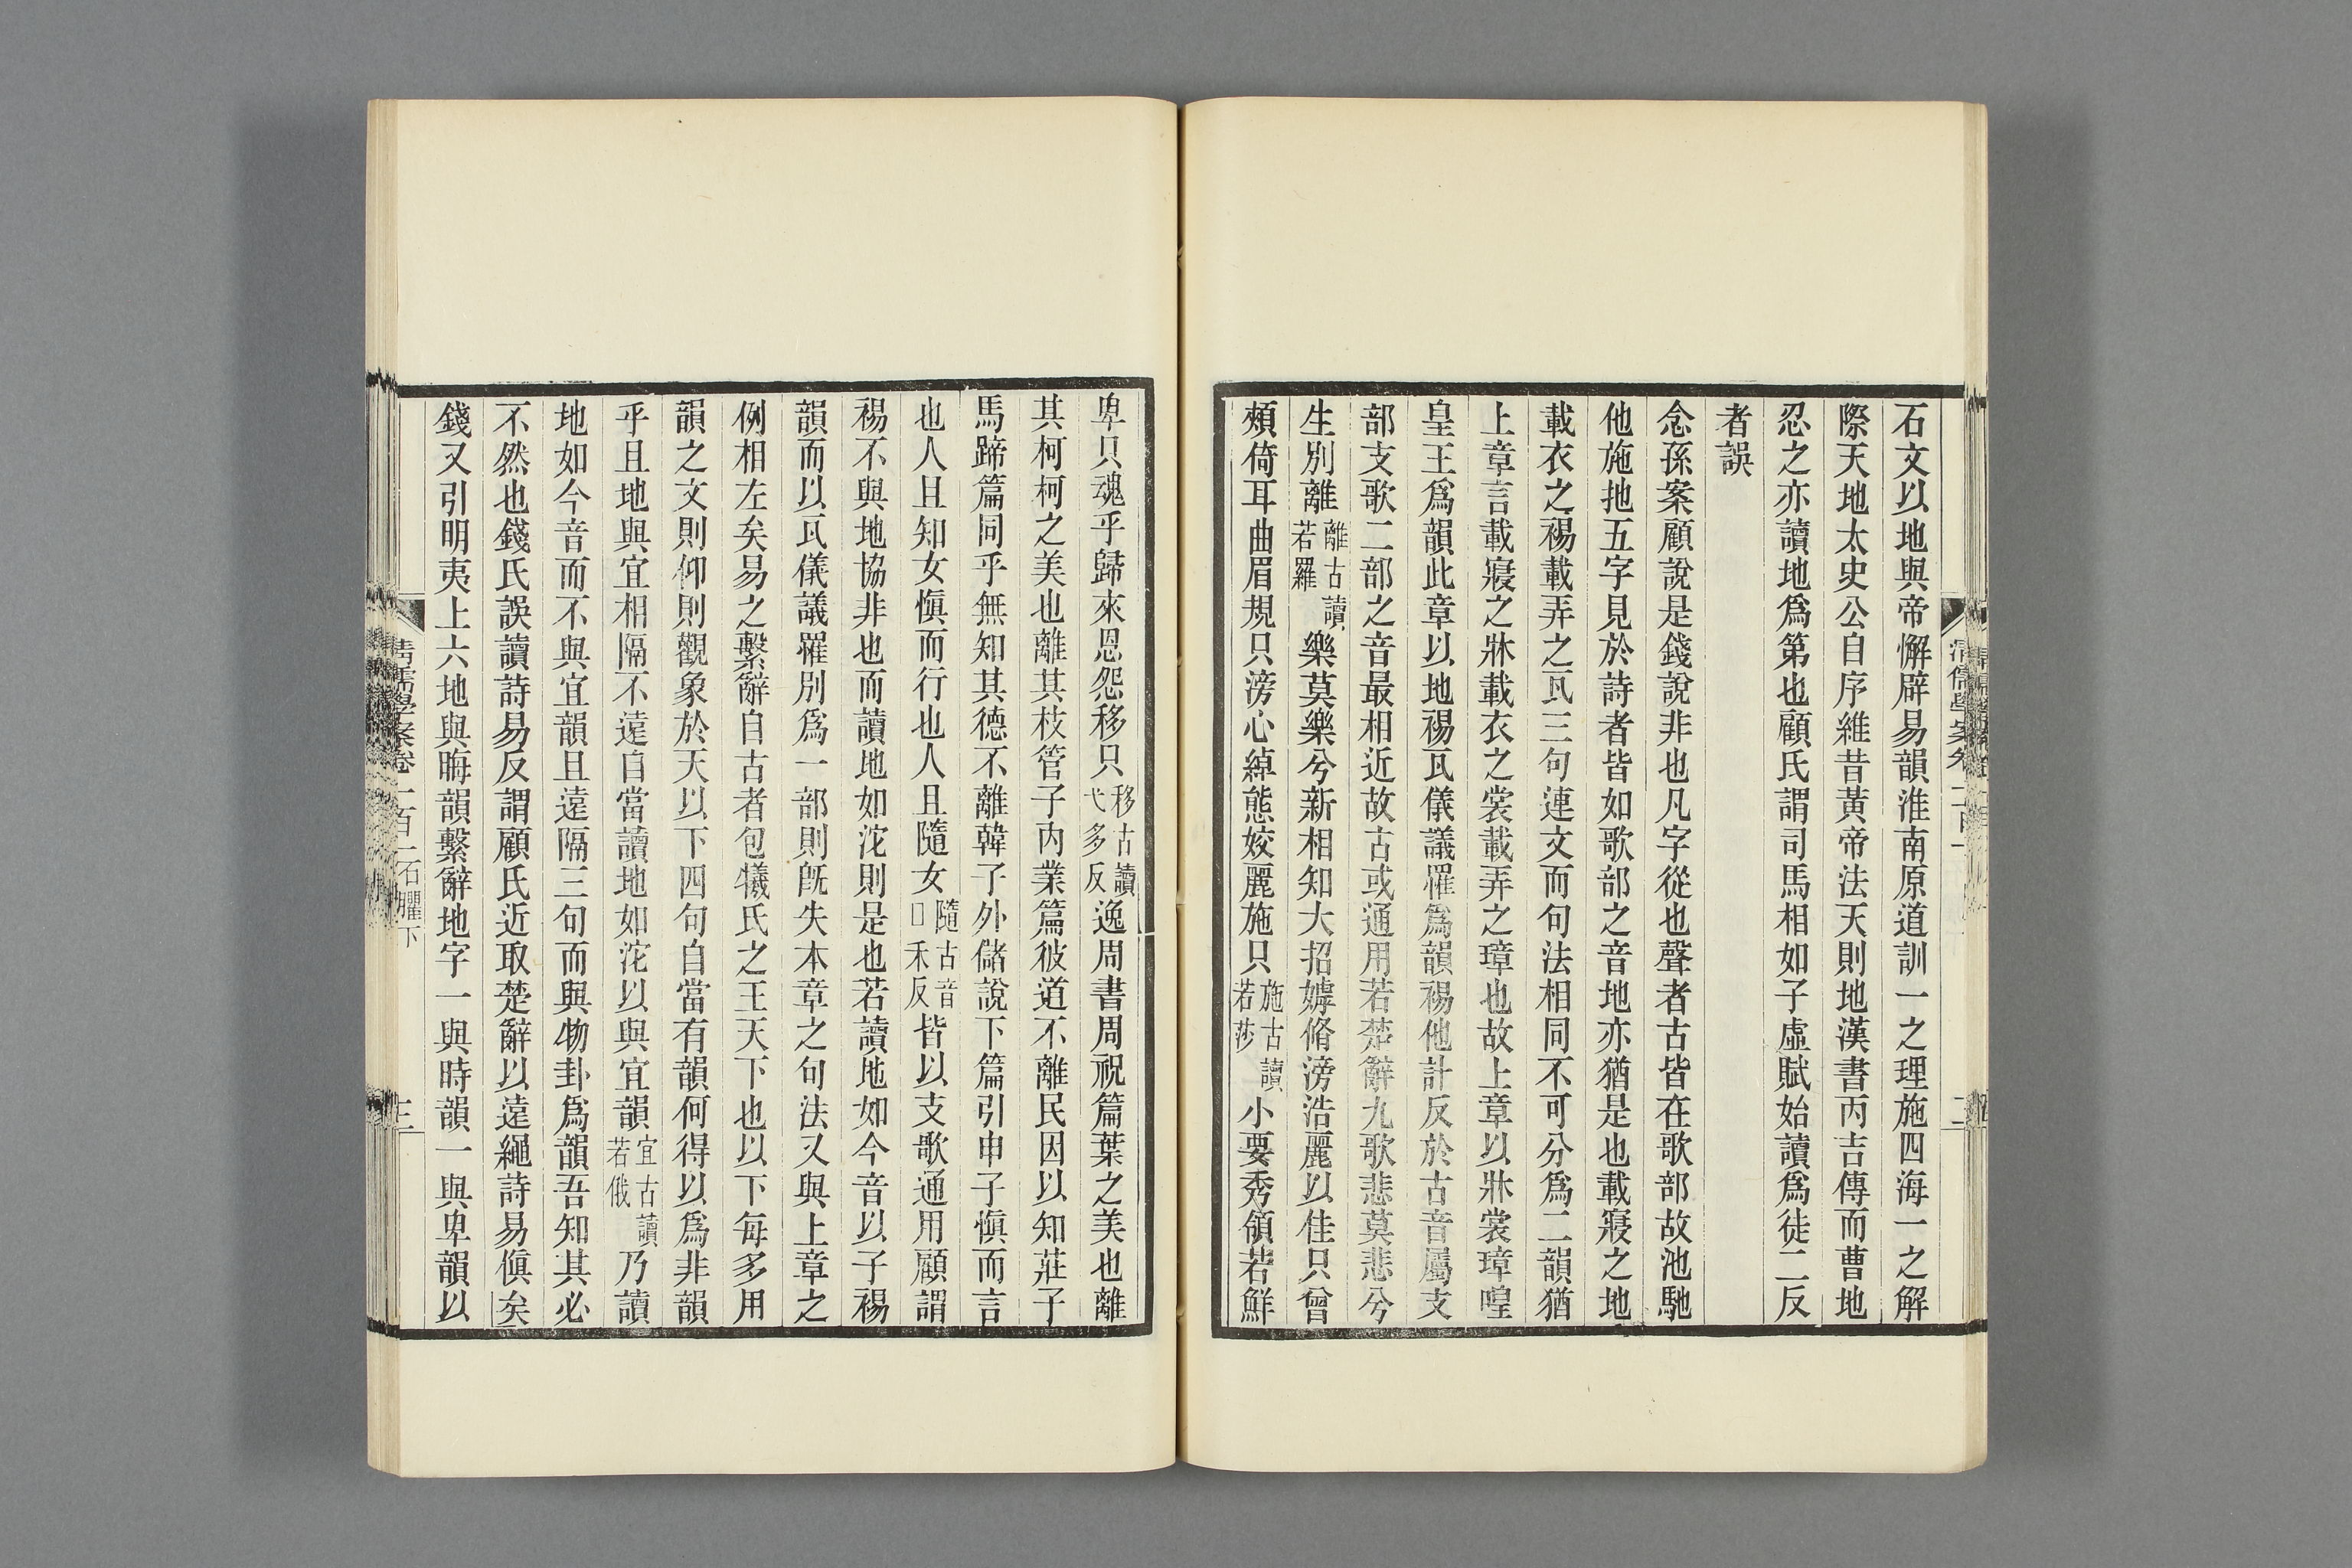 石文以地與帝懈辟易韻淮南原道訓一之理施四海一之解
際天地太史公自序維昔黃帝法天則地漢書丙吉傳而曹地
忍之亦讀地爲第也顧氏謂司馬相如子虛賦始讀爲徒二反
者誤
念孫案顧說是錢說非也凡字從也聲者古皆在歌部故池馳
他施扡五字見於詩者皆如歌部之音地亦猶是也載寢之地
載衣之裼載弄之瓦三句連文而句法相同不可分爲二韻猶
上章言載寢之牀載衣之裳載弄之璋也故上章以牀裳璋喤
皇王爲韻此章以地裼瓦儀議罹爲韻裼他計反於古音屬支
部支歌二部之音最相近故古或通用若楚辭九歌悲莫悲兮
生別離離古讀若羅樂莫樂兮新相知大招嫭脩滂浩麗以佳只曾
頰倚耳曲眉規只滂心綽態姣麗施只施古讀若莎小要秀領若鮮
卑只魂乎歸來恩怨移只移古讀弋多反逸周書周祝篇葉之美也離
其柯柯之美也離其枝管子內業篇彼道不離民因以知莊子
馬蹄篇同乎無知其德不離韓子外儲說下篇引申子愼而言
也人且知女愼而行也人且隨女隨古音□禾反皆以支歌通用顧謂
裼不與地協非也而讀地如沱則是也若讀地如今音以子裼
韻而以瓦儀議罹別爲一部則旣失本章之句法又與上章之
例相左矣易之繫辭自古者包犧氏之王天下也以下每多用
韻之文則仰則觀象於天以下四句自當有韻何得以爲非韻
乎且地與宜相隔不遠自當讀地如沱以與宜韻宜古讀若俄乃讀
地如今音而不與宜韻且遠隔三句而與物卦爲韻吾知其必
不然也錢氏誤讀詩易反謂顧氏近取楚辭以遠繩詩易愼矣
錢又引明夷上六地與晦韻繫辭地字一與時韻一與卑韻以
清儒學案卷一百一石臞下
三